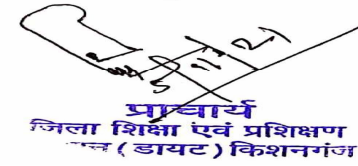 प्राचार्य
जिला शिक्षा एवं प्रशिक्षण
(डायट) किशनगंज